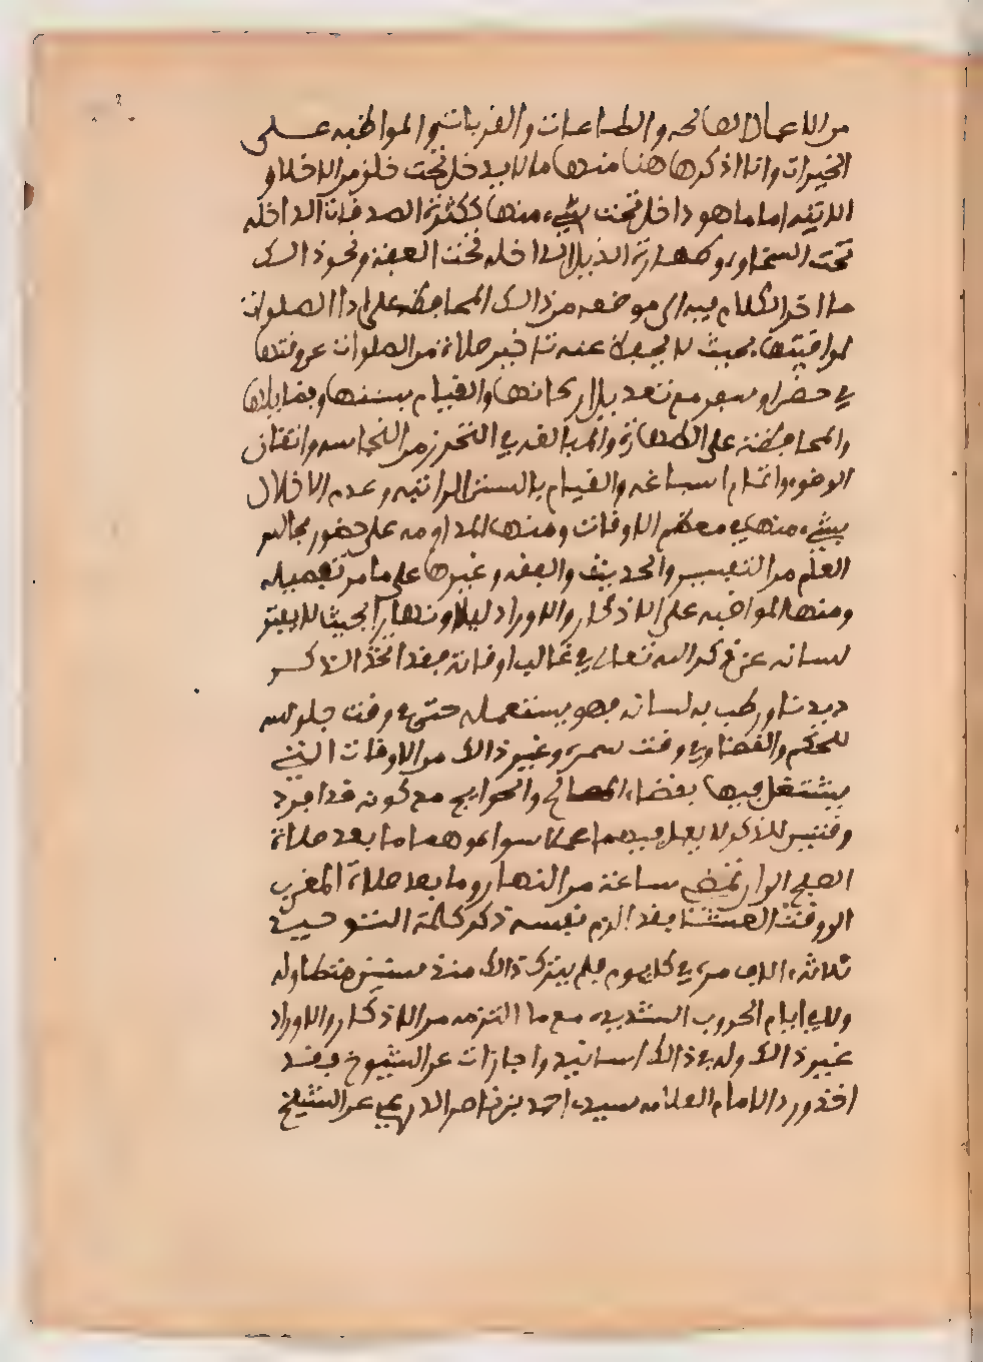 من الاعمال الصالحه والطاعات والقربات والمواظبه على
الخيرات وانا اذكرها هنا منها ما لا يدخل تحت خلق من الاخلاق
الاتيه اما ما هو داخل تحت شيء منها ككثرة الصدقات الداخله
تحت السخاوه وكطهارة الذيل الداخله تحت العفة ونحو ذالك
ما اخر الكلام فيه الى موضعه من ذالك المحافظه على اداء الصلوات
لمواقيتها بحيث لا يحفظ عنه تاخير صلاة من الصلوات عن وقتها
في حضر او سفر مع تعديل اركانها والقيام بسننها وفضايلها
والمحافظة على الطهارة والمبالغه في التحرز من النجاسه واتقان
الوضوء واتمام اسباغه والقيام بالسنن الراتبه وعدم الاخلال
بشيء منها في معظم الاوقات ومنها المداومه على حضور مجالس
العلم من التفسير والحديث والفقه وغيرها على ما مر تفصيله
ومنها المواظبه على الاذكار والاوراد ليلا ونهارا بحيث لا يفتر
لسانه عن ذكر الله تعالى في غالب اوقاته فقد اتخذ الذكر
ديدنا ورطب به لسانه فهو يستعمله حتى في وقت جلوسه
للحكم والقضاء وفي وقت سمره وغير ذالك من الاوقات التي
يشتغل فيها بقضاء المصالح والحوايج مع كونه قد افرد
وقتين للذكر لا يعمل فيهما عملا سواه وهما ما بعد صلاة
الصبح الى ان تمضي ساعة من النهار وما بعد صلاة المغرب
الى وقت العشاء فقد الزم نفسه ذكر كلمة التوحيد
ثلاثة الاف مرة في كل يوم فلم يترك ذالك منذ سنين متطاوله
ولا في ايام الحروب الشديده مع ما التزمه من الاذكار والاوراد
غير ذالك وله في ذالك اسانيد واجازات عن الشيوخ فقد
اخذ ورد الامام العلامه سيدي احمد بن ناصر الدرعي عن الشيخ